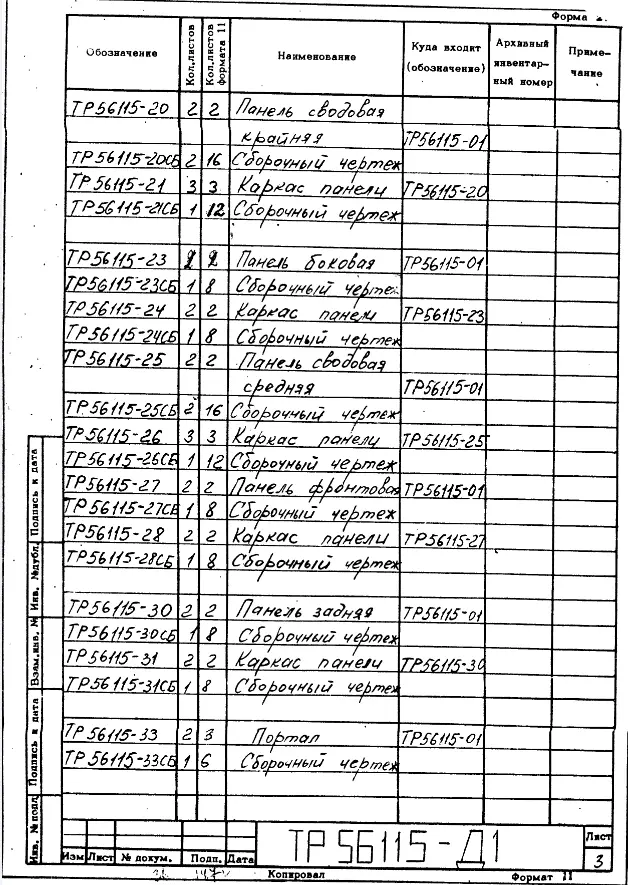 Форма 2.
Обозначение Кол.листов Кол.листов формата 11 Наименование Куда входит (обозначение) Архивный инвентарный номер Примечание
ТР56115-20 2 2 Панель сводовая
крайняя ТР56115-01
ТР56115-20СБ 2 16 Сборочный чертеж
ТР56115-21 3 3 Каркас панели ТР56115-20
ТР56115-21СБ 1 12 Сборочный чертеж
ТР56115-23 2 2 Панель боковая ТР56115-01
ТР56115-23СБ 1 8 Сборочный чертеж
ТР56115-24 2 2 Каркас панели ТР56115-23
ТР56115-24СБ 1 8 Сборочный чертеж
ТР56115-25 2 2 Панель сводовая
средняя ТР56115-01
ТР56115-25СБ 2 16 Сборочный чертеж
ТР56115-26 3 3 Каркас панели ТР56115-25
ТР56115-26СБ 1 12 Сборочный чертеж
ТР56115-27 2 2 Панель фронтовая ТР56115-01
ТР56115-27СБ 1 8 Сборочный чертеж
ТР56115-28 2 2 Каркас панели ТР56115-27
ТР56115-28СБ 1 8 Сборочный чертеж
ТР56115-30 2 2 Панель задняя ТР56115-01
ТР56115-30СБ 1 8 Сборочный чертеж
ТР56115-31 2 2 Каркас панели ТР56115-30
ТР56115-31СБ 1 8 Сборочный чертеж
ТР56115-33 2 3 Портал ТР56115-01
ТР56115-33СБ 1 6 Сборочный чертеж
Подпись и дата
Инв. №дубл.
Взам.инв. №
Подпись и дата
Инв. № подл.
ТР 56115-Д1
Лист
3
Изм Лист № докум. Подп. Дата
Копировал Формат 11